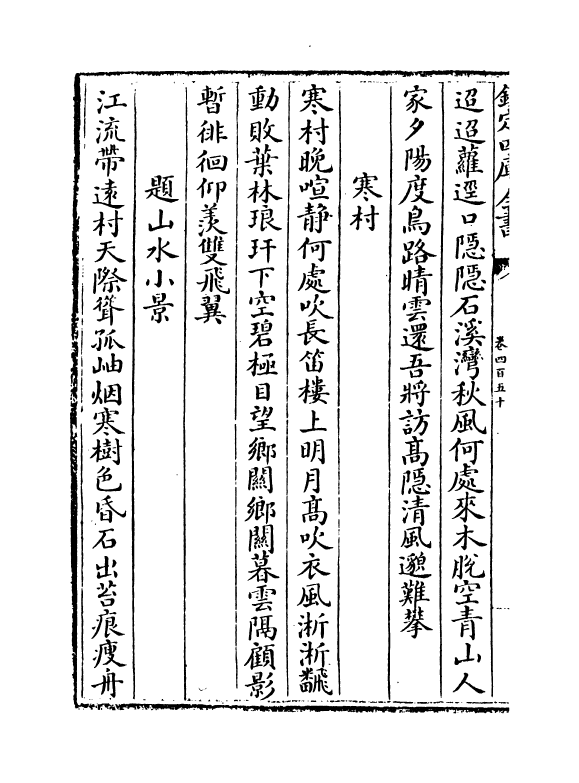 欽定四庫全書
卷四百五十
迢迢蘿逕口隱隱石溪灣秋風何處來木脫空青山人
家夕陽度鳥路晴雲還吾將訪髙隱清風邈難攀
寒村
寒村晚喧靜何處吹長笛樓上明月髙吹衣風淅淅飜
動敗葉林琅玕下空碧極目望鄉關鄉關暮雲隔顧影
暫徘徊仰羨雙飛翼
題山水小景
江流帶遠村天際聳孤岫烟寒樹色昏石出苔痕瘦舟